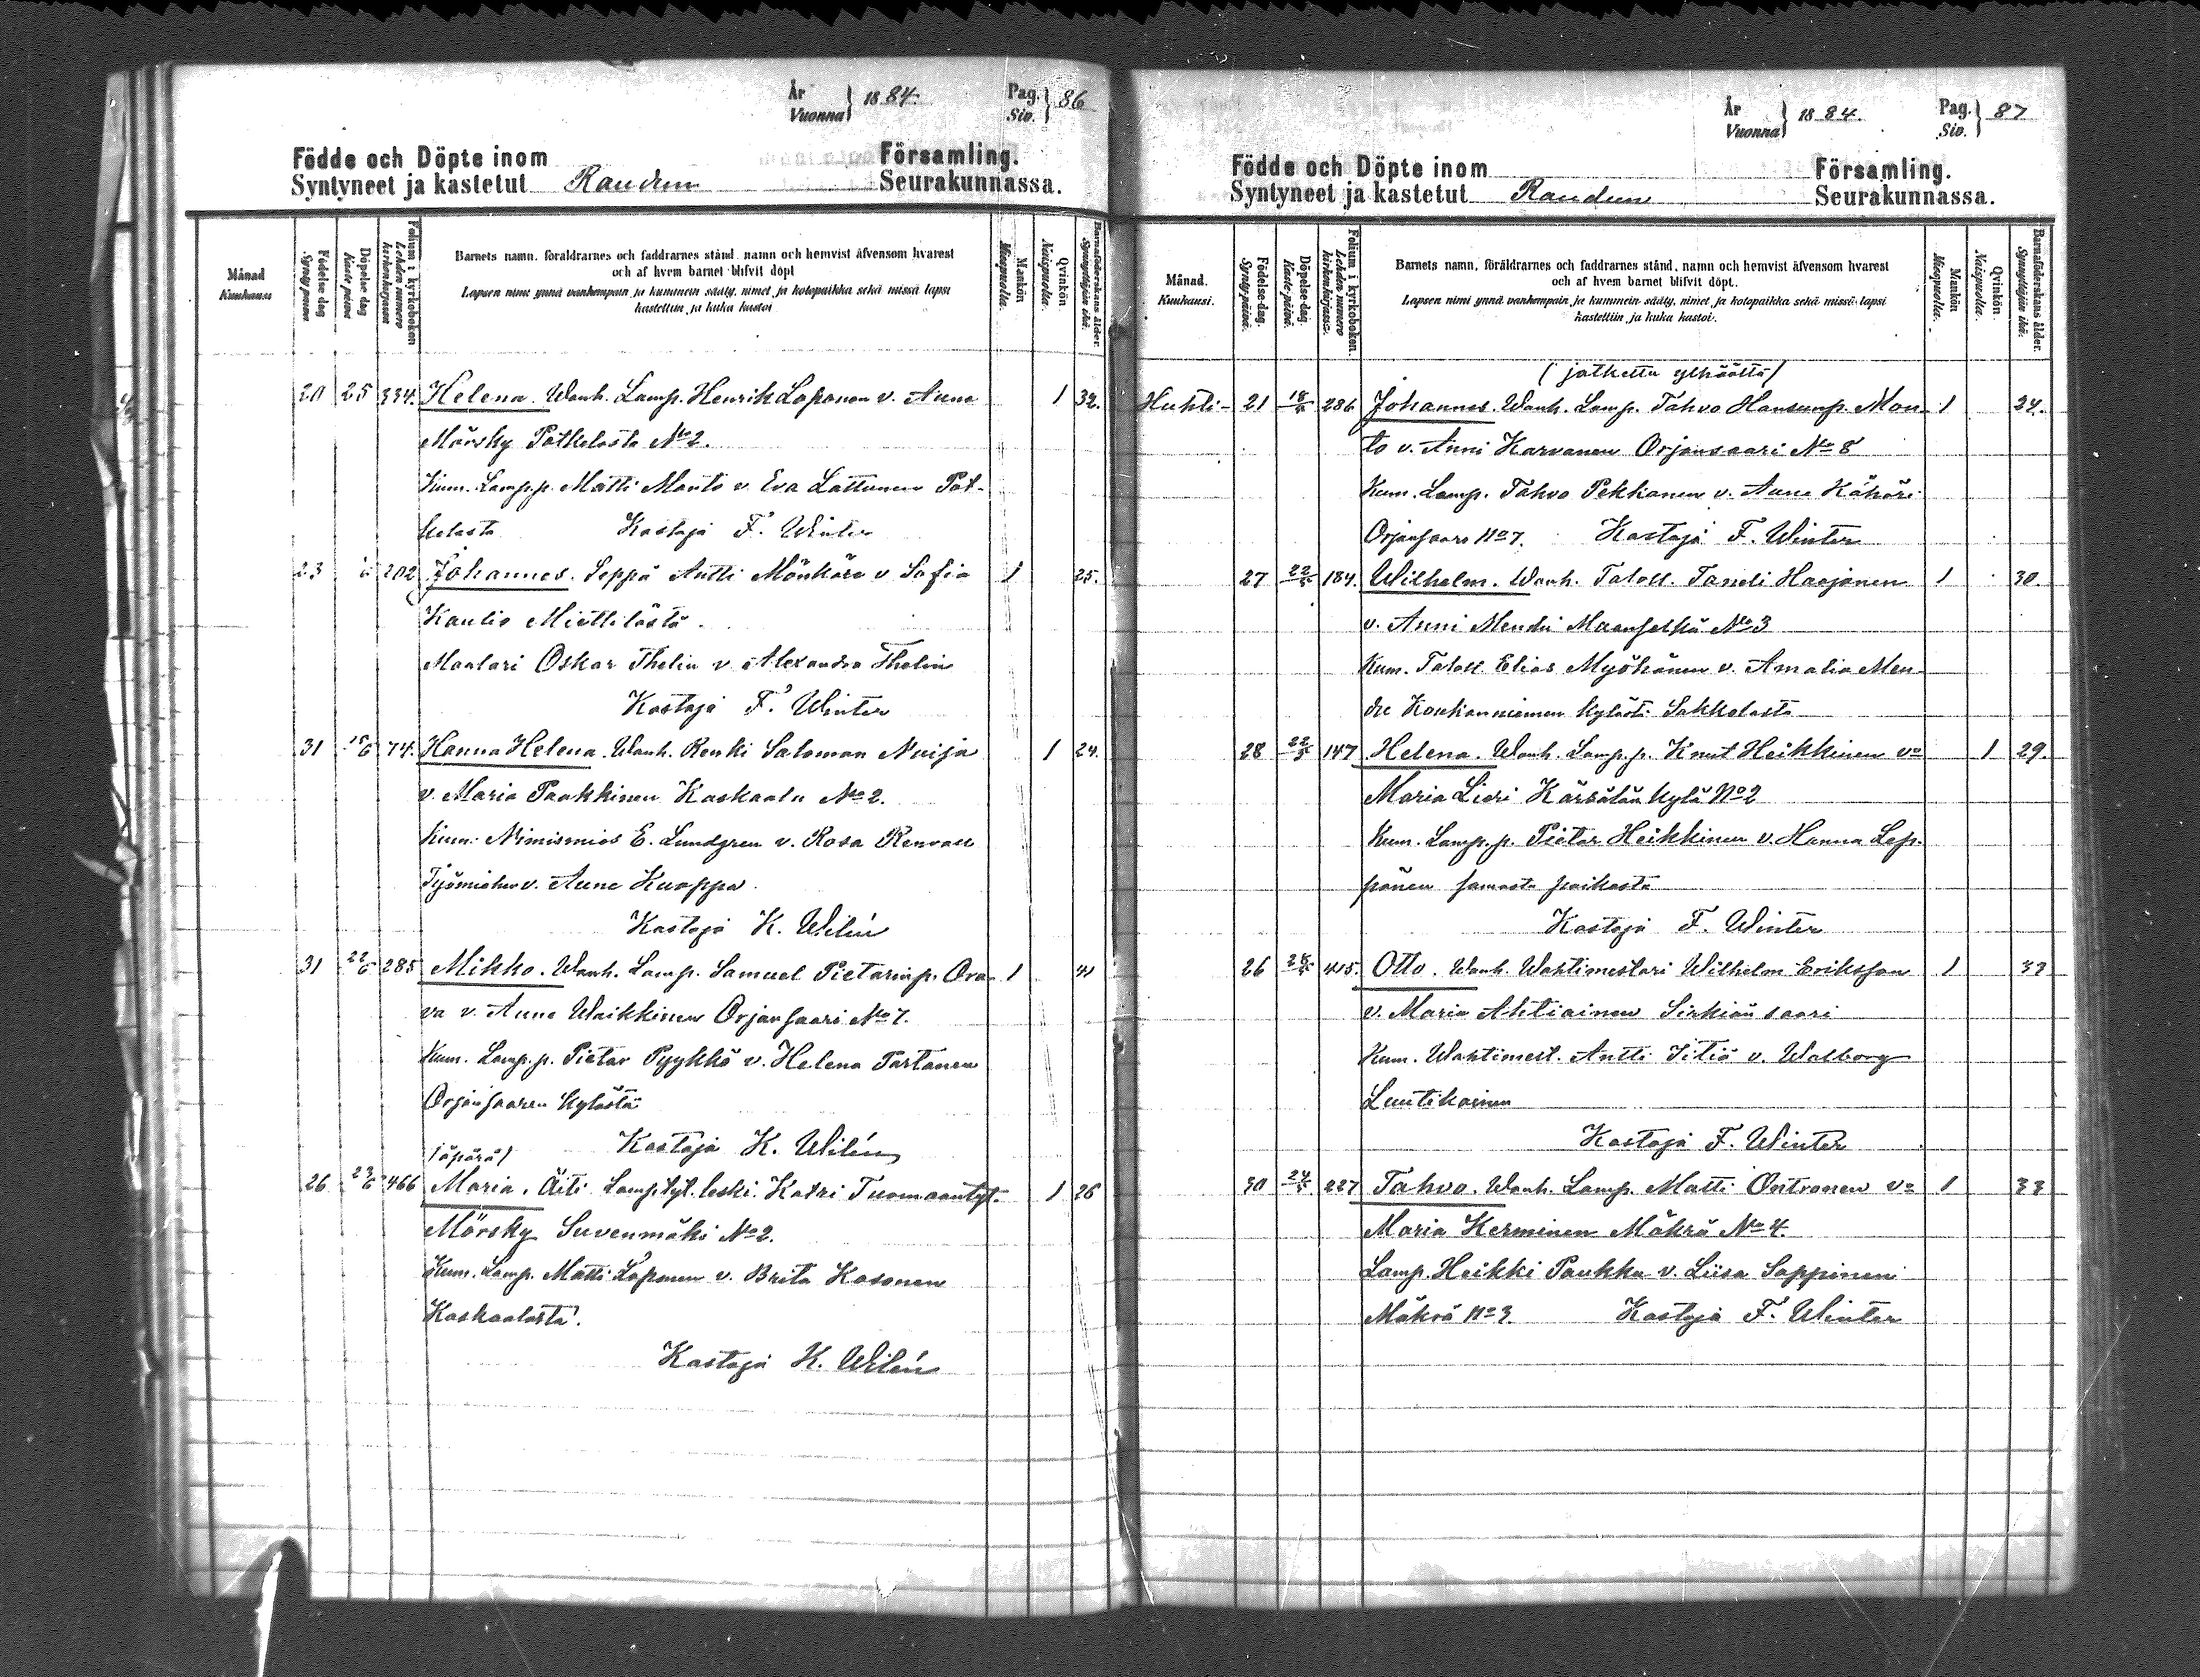 År
Vuonna } 1884.
Pag.
Siv. } 86
Födde och Döpte inom Församling.
Syntyneet ja kastetut Raudun Seurakunnassa.
Månad
Kuukausi
Födelse dag
Synty päivä
Döpelse dag
Kaste päivä
Folium i kyrkoboken
Lehden numero kirkonkirjassa
Barnets namn, föräldrarnes och faddrarnes stånd, namn och hemvist äfvensom hvarest
och af hvem barnet blifvit döpt
Lapsen nimi ynnä vanhempain ja kummein sääty, nimet ja kotopaikka sekä missä lapsi
kastettiin ja kuka kastoi
Mankön
Miespuolta.
Qvinkön
Naispuolta.
Barnaföderskans ålder.
Synnyttäjän ikä.
20 25 334. Helena. Wanh. Lamp. Henrik Loponen v. Anna 1 32.
Mörsky Potkelasta No 2.
Kum. Lamp.p. Matti Monto v. Eva Lattunen Pot-
kelasta Kastaja F. Winter
23 202 Johannes. Seppä Antti Mönkäre v. Sofia 1 25.
Kaulio Miettilästä.
Maalari Oskar Thelin v. Alexandra Thelin
Kastaja F. Winter
31 15/6 74. Hanna Helena. Wanh. Renki Salomon Nuija 1 24.
v. Maria Paukkinen Kaskaala No 2.
Kum. Nimismies E. Lundgren v. Rosa Renvall
Työmiehen v. Anna Kuoppa.
Kastaja K. Wilén
31 22/6 285 Mikko. Wanh. Lamp. Samuel Pietarinp. Ora- 1 41
va v. Anna Waikkinen Orjansaari No 7.
Kum. Lamp.p. Pietar Pyykkö v. Helena Tartanen
Orjansaaren kylästä
Kastaja K. Wilén
(äpärä)
26 23/6 466 Maria. Äiti Lamp.tyt. leski Katri Tuomaantyt. 1 26
Mörsky Suvenmäki No 2.
Kum. Lamp. Matti Loponen v. Brita Kosonen
Kaskaalasta.
Kastaja K. Wilén
År
Vuonna } 1884.
Pag.
Siv. } 87
Födde och Döpte inom Församling.
Syntyneet ja kastetut Raudun Seurakunnassa.
Månad.
Kuukausi.
Födelse-dag.
Synty-päivä.
Döpelse-dag.
Kaste-päivä.
Folium i kyrkoboken.
Lehden numero kirkonkirjassa.
Barnets namn, föräldrarnes och faddrarnes stånd, namn och hemvist äfvensom hvarest
och af hvem barnet blifvit döpt.
Lapsen nimi ynnä vanhempain ja kummein sääty, nimet ja kotopaikka sekä missä lapsi
kastettiin ja kuka kastoi.
Mankön
Miespuolta.
Qvinkön
Naispuolta.
Barnaföderskans ålder.
Synnyttäjän ikä.
(jatketta ylhäältä)
Huhti- 21 18/5 286 Johannes. Wanh. Lamp. Tahvo Hansunp. Mon- 1 24.
to v. Anni Karvanen Orjansaari No 8
Kum. Lamp. Tahvo Pekkanen v. Anna Kähäri
Orjansaare No 7. Kastaja F. Winter
27 22/5 184. Wilhelm. Wanh. Taloll. Taneli Haajanen 1 30.
v. Anni Mendri Maanselkä No 3
Kum. Taloll. Elias Myöhänen v. Amalia Men-
dri Koukunniemen kylästä Sakkolasta
28 22/5 147 Helena. Wanh. Lamp.p. Knut Heikkinen v= 1 29.
Maria Liiri Kärsälän kylä No 2
Kum. Lamp.p. Pietar Heikkinen v. Hanna Lep-
pänen samasta paikasta
Kastaja F. Winter
26 28/5 415. Otto. Wanh. Wahtimestari Wilhelm Eriksson 1 38
v. Maria Ahtiainen Sirkiänsaari
Kum. Wahtimest. Antti Iitiä v. Walborg
Luutikainen
Kastaja F. Winter
30 24/5 227 Tahvo. Wanh. Lamp. Matti Ontronen v= 1 33
Maria Kerminen Mäkrä No 4.
Lamp. Heikki Paukku v. Liisa Soppinen
Mäkrä No 3. Kastaja F. Winter